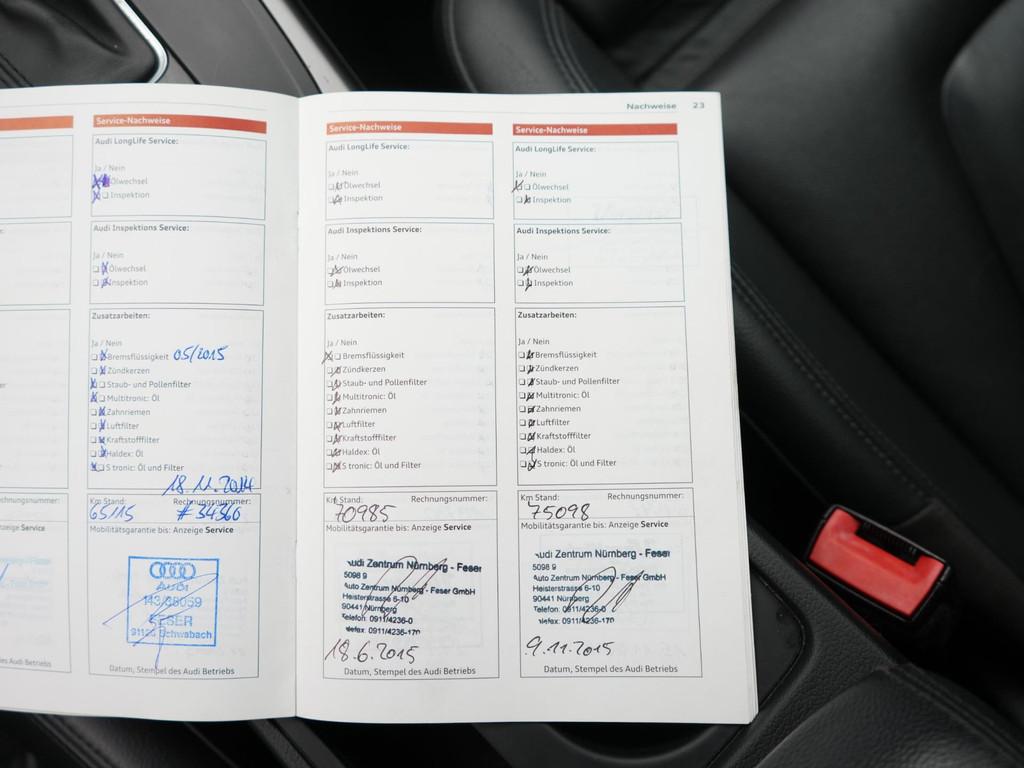 Nachweise 23
Service-Nachweise
Audi LongLife Service:
Ja / Nein
Ölwechsel
Inspektion
Audi Inspektions Service:
Ja / Nein
Ölwechsel
Inspektion
Zusatzarbeiten:
Ja / Nein
Bremsflüssigkeit 05/2015
Zündkerzen
Staub- und Pollenfilter
Multitronic: Öl
Zahnriemen
Luftfilter
Kraftstofffilter
Haldex: Öl
S tronic: Öl und Filter
18.11.2014
Km Stand: Rechnungsnummer:
65115 #34360
Mobilitätsgarantie bis: Anzeige Service
Audi
FESER
Schwabach
Datum, Stempel des Audi Betriebs
Service-Nachweise
Audi LongLife Service:
Ja / Nein
Ölwechsel
Inspektion
Audi Inspektions Service:
Ja / Nein
Ölwechsel
Inspektion
Zusatzarbeiten:
Ja / Nein
Bremsflüssigkeit
Zündkerzen
Staub- und Pollenfilter
Multitronic: Öl
Zahnriemen
Luftfilter
Kraftstofffilter
Haldex: Öl
S tronic: Öl und Filter
Km Stand: Rechnungsnummer:
70985
Mobilitätsgarantie bis: Anzeige Service
Audi Zentrum Nürnberg - Feser
5098 9
Auto Zentrum Nürnberg - Feser GmbH
Heisterstrasse 6-10
90441 Nürnberg
Telefon: 0911/4236-0
Telefax: 0911/4236-170
18.6.2015
Datum, Stempel des Audi Betriebs
Service-Nachweise
Audi LongLife Service:
Ja / Nein
Ölwechsel
Inspektion
Audi Inspektions Service:
Ja / Nein
Ölwechsel
Inspektion
Zusatzarbeiten:
Ja / Nein
Bremsflüssigkeit
Zündkerzen
Staub- und Pollenfilter
Multitronic: Öl
Zahnriemen
Luftfilter
Kraftstofffilter
Haldex: Öl
S tronic: Öl und Filter
Km Stand: Rechnungsnummer:
75098
Mobilitätsgarantie bis: Anzeige Service
Audi Zentrum Nürnberg - Feser
5098 9
Auto Zentrum Nürnberg - Feser GmbH
Heisterstrasse 6-10
90441 Nürnberg
Telefon: 0911/4236-0
Telefax: 0911/4236-170
9.11.2015
Datum, Stempel des Audi Betriebs